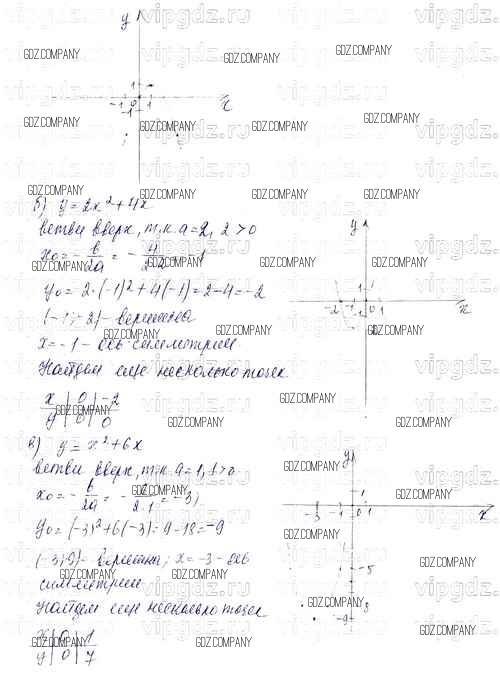 y
1
-1 0 1 x
-1
б) y = 2x² + 4x
ветви вверх, т.к. a = 2, 2 > 0
x₀ = - b/2a = - 4/2·2 = -1
y₀ = 2·(-1)² + 4(-1) = 2 - 4 = -2
(-1; -2) - вершина
x = -1 - ось симметрии
Найдем еще несколько точек
x | 0 | -2
y | 0 | 0
y
1
-2 -1 0 1 x
в) y = x² + 6x
ветви вверх, т.к. a = 1, 1 > 0
x₀ = - b/2a = - 6/2·1 = -3;
y₀ = (-3)² + 6(-3) = 9 - 18 = -9
(-3; -9) - вершина; x = -3 - ось
симметрии
Найдем еще несколько точек
x | 0 | 1
y | 0 | 7
y
1
-3 -1 0 1 x
-5
-8
-9
GDZ.COMPANY
vipgdz.ru